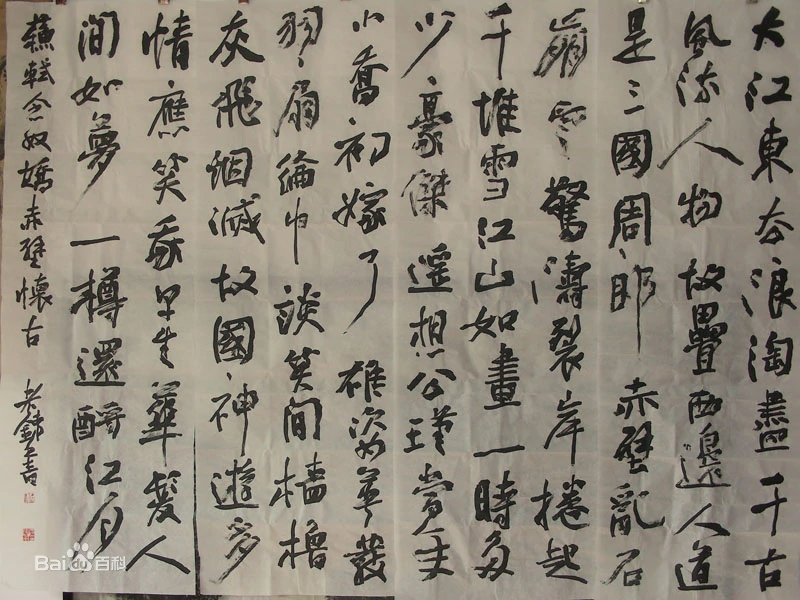 大江東去浪淘盡千古
風流人物故壘西邊人道
是三國周郎赤壁亂石
崩雲驚濤裂岸捲起
千堆雪江山如畫一時多
少豪傑遥想公瑾當年
小喬初嫁了雄姿英發
羽扇綸巾談笑間檣櫓
灰飛烟滅故國神遊多
情應笑我早生華髮人
間如夢一樽還酹江月
蘇軾念奴嬌赤壁懷古 老書
Bai百科